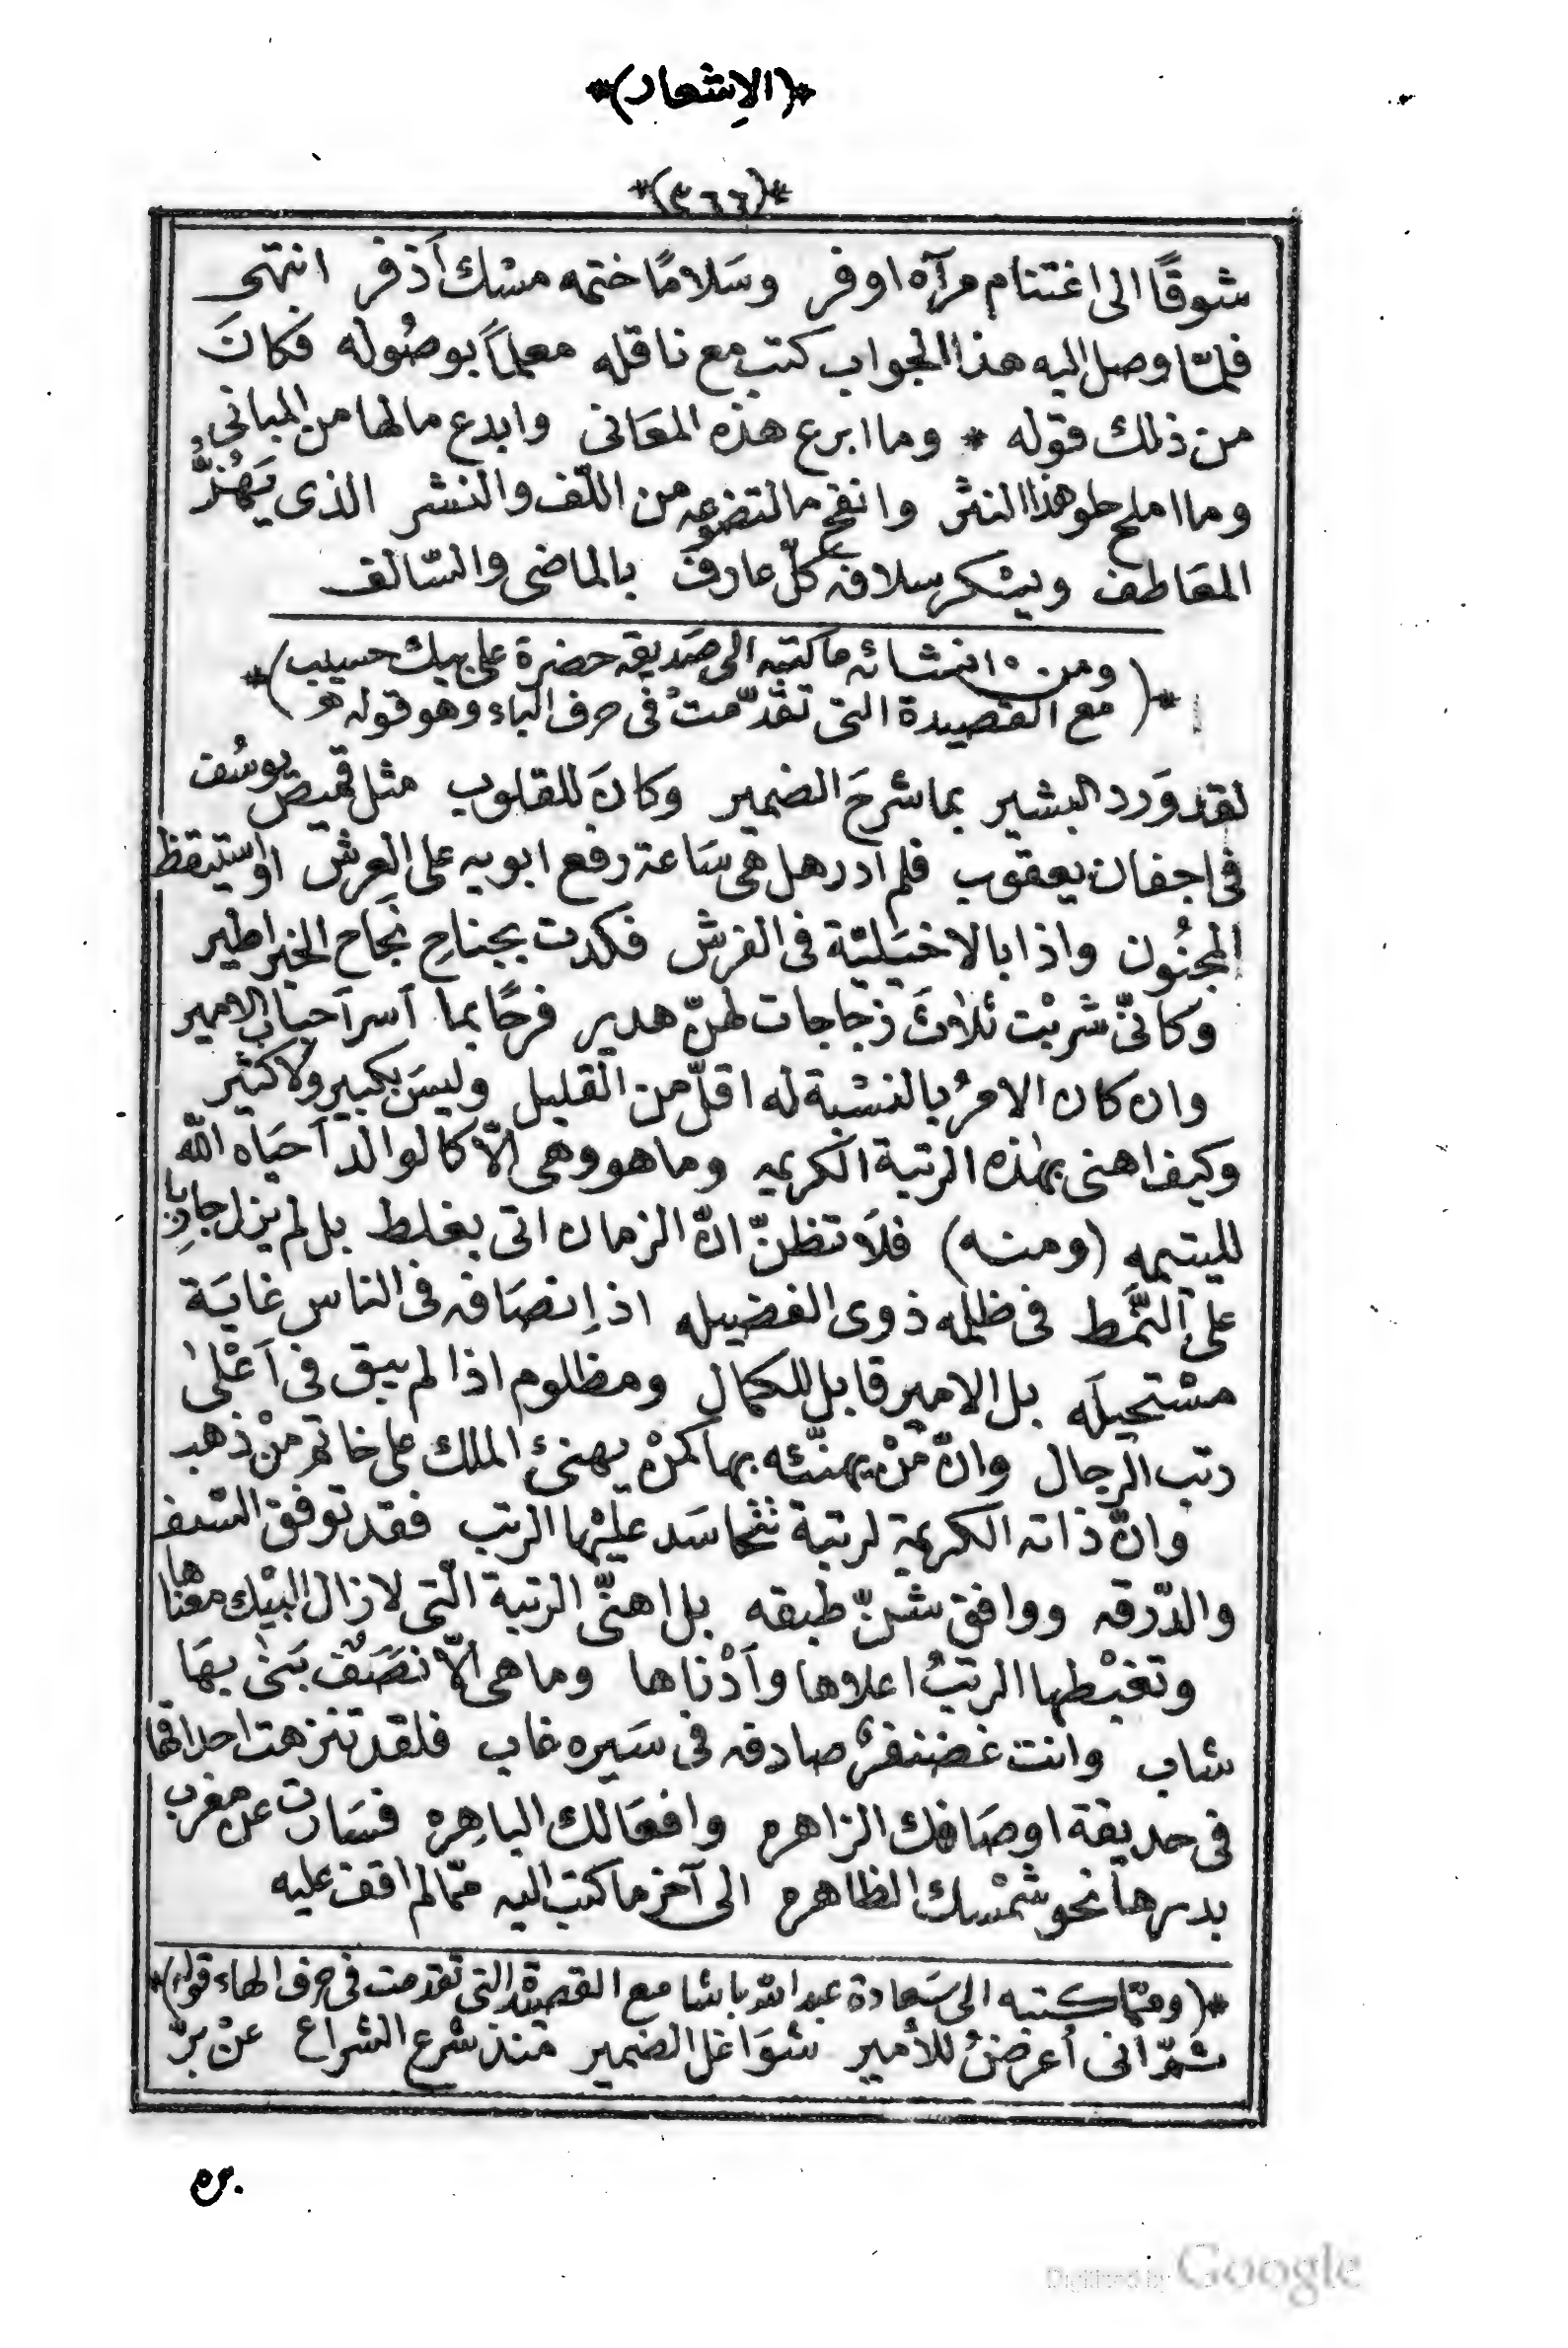 *(الإشعار)*
*(٣٦٦)*
شوقًا الى اغتنام مرآه اوفر وسَلامًا ختمه مسْك أذفر انتهى
فلمّا وصل اليه هذا الجواب كتب مع ناقله معلماً بوصُوله فكانَ
من ذلك قوله * وما ابرع هذه المعَانى وابدع مالها من المبانى
وما املح حلو هذا النثر وانفح مالتضوعه من اللّف والنشر الذى يَهُزُّ
المعَاطف ويسْكر سلافه كلّ عارف بالماضى والسّالف
*(ومن انشائه ما كتبه الى صَديقه حضرة على بيك حسيب
مع القصيدة التى تقدّمتْ فى حرف الباء وهو قوله)*
لقد وَرد البشير بما شرحَ الضمير وكانَ للقلوب مثل قميص يوسُف
فى اجفان يعقوب فلم ادر هل هى سَاعة رفع ابويه على العرش او استيقظ
المجنُون واذا بالاخيَليّة فى الفرش فكدت بجناحِ نجَاح الخبر اطير
وكانّى شربْت ثلاثَ زجاجات لهنّ هدير فرحًا بما أسر أحباب الامير
وان كان الامرُ بالنسْبة له اقلّ من القليل وليسَ بكبير ولا كثير
وكيف اهنى بهٰذه الرتبة الكريمه وما هو وهى الّا كالوالد أحيَاه اللّه
لليتيمه (ومنه) فلَا تظنّ انّ الزمان اتى بغلط بل لم يزل جاريا
على النَّمط فى ظلمه ذوى الفضيله اذ إنصَافه فى الناس غايَة
مسْتحيله بل الامير قابل للكمال ومظلوم اذا لم يبق فى أعْلىٰ
رتب الرجال وانّ مَنْ يهنّئه بها كمنْ يهنئ الملك على خاتم منْ ذهب
وانّ ذاته الكريمة لرتبة تتحاسَد عليْها الرتب فقد توفق السّيف
والدّرقه ووافق شنّ طبقه بل اهنّى الرتبة الّتى لا زال البيْك معناها
وتغبْطها الرتبُ اعلاها وأدْناها وما هى الّا نصَفٌ بَنىٰ بهَا
شاب وانت غضنفرٌ صادفه فى سَيره غاب فلقد تنزهت احداقها
فى حديقة اوصَافك الزاهره وافعَالك الباهِره فسَارت عن مغرب
بدرها نحو شمْسك الظاهره الى آخر ما كتب اليه ممّا لم اقف عليه
*(وممّا كتبه الى سَعادة عبد الله باشا مع القصيدة التى تقدمت فى حرف الهاء قوله)*
ثمّ انى أعرضُ للأمير شوَاغل الضمير منذ شرع الشراع عنْ برّ
Digitized by Google